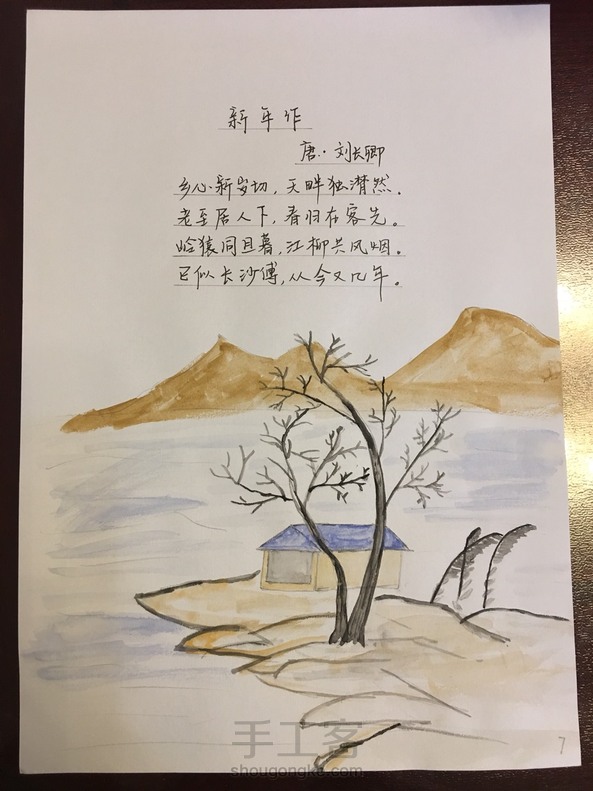 新年作
唐·刘长卿
乡心新岁切，天畔独潸然。
老至居人下，春归在客先。
岭猿同旦暮，江柳共风烟。
已似长沙傅，从今又几年。
手工客
shougongke.com
7